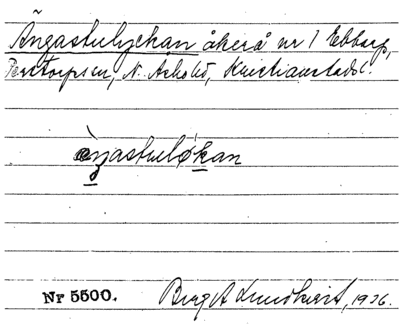 Ängastulyckan åkerå nr 1 Ebbarp,
Perstorps sn, N. Åsbo hd, Kristianstads l.
ängastuløkan
Nr 5500. Birg A Lundkvist, 1926.